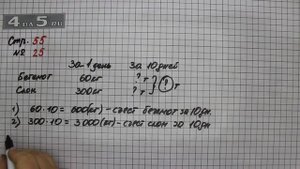 4 НА 5.RU
Стр. 55
№ 25
За 1 день За 10 дней
Бегемот 60 кг ? т ? т
Слон 300 кг ? т
1) 60·10 = 600(кг) – съест бегемот за 10 дн.
2) 300·10 = 3 000(кг) – съест слон за 10 дн.